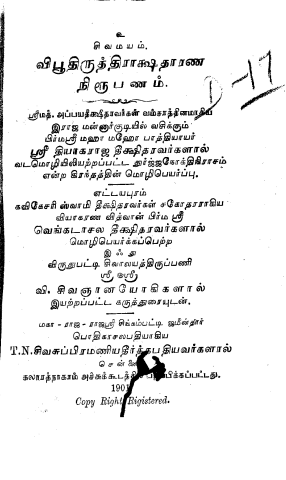 உ
சிவமயம்.
விபூதிருத்திராக்ஷதாரண
நிரூபணம்.
ஸ்ரீமத். அப்பயதீக்ஷிதரவர்கள் வம்சாத்தினமாகிய
இராஜ மன்னார்குடியில் வசிக்கும்
பிர்மஸ்ரீ மஹா மஹோ பாத்தியாயர்
ஸ்ரீ தியாகராஜ தீக்ஷிதரவர்களால்
வடமொழியிலியற்றப்பட்ட
என்ற கிரந்தத்தின் மொழிபெயர்ப்பு.
எட்டயபுரம்
கவிகேசரி ஸ்வாமி தீக்ஷிதரவர்கள் சகோதரராகிய
வியாகரண வித்வான் பிர்ம ஸ்ரீ
வெங்கடாசல தீக்ஷிதரவர்களால்
மொழிபெயர்க்கப்பெற்ற
இஃது
விருதுபட்டி சிவாலயத்திருப்பணி
ஸ்ரீ
வி. சிவஞானயோகிகளால்
இயற்றப்பட்ட கருத்துரையுடன்.
மகா-ராஜ-ராஜஸ்ரீ சிங்கம்பட்டி ஜமீன்தார்
பொதிகாசலபதியாகிய
T.N. சிவசுப்பிரமணியதீர்த்தபதியவர்களால்
சென்
கலாரத்நாகரம் அச்சுக்கூடத்தி பிக்கப்பட்டது.
190
Copy Right Rigistered.